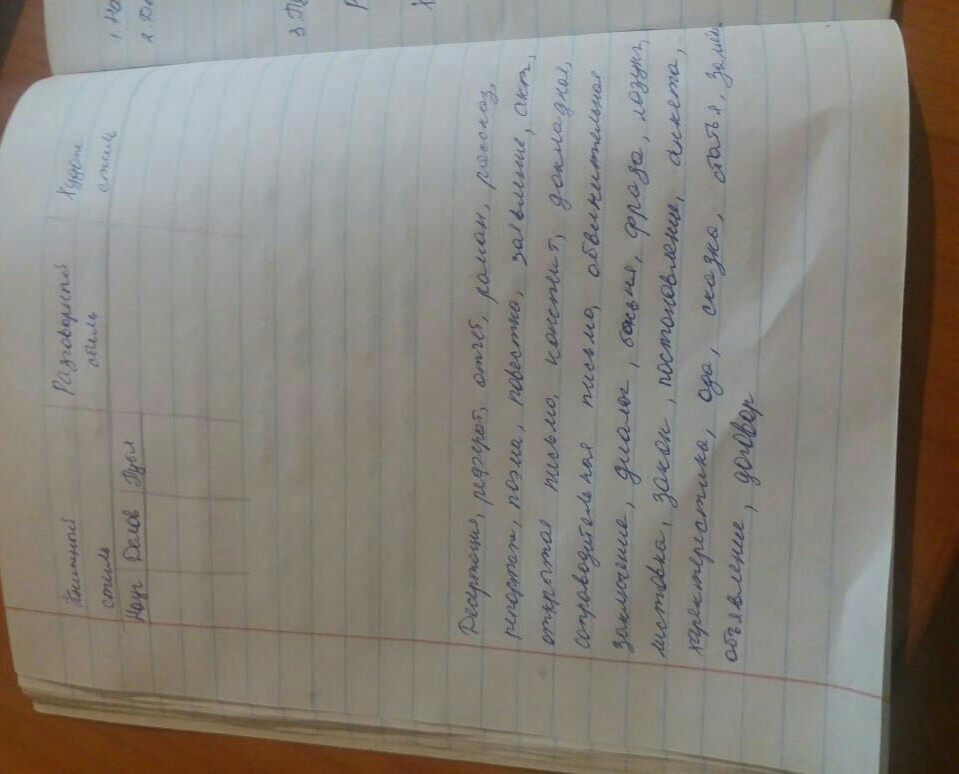 1. На
2. До
3. Пр
Р
Х
Книжный стиль Разговорный стиль Худож стиль
Науч Делов Публ
Десертация, реферат, отчёт, роман, рассказ,
репортаж, поэма, повестка, заявление, акт,
открытое письмо, конспект, докладная,
сопроводительная письмо, объяснительная
заключение, диалог, басня, фраза, лозунг,
листовка, закон, постановление, анкета,
характеристика, ода, сказка, статья, заме
объявление, договор